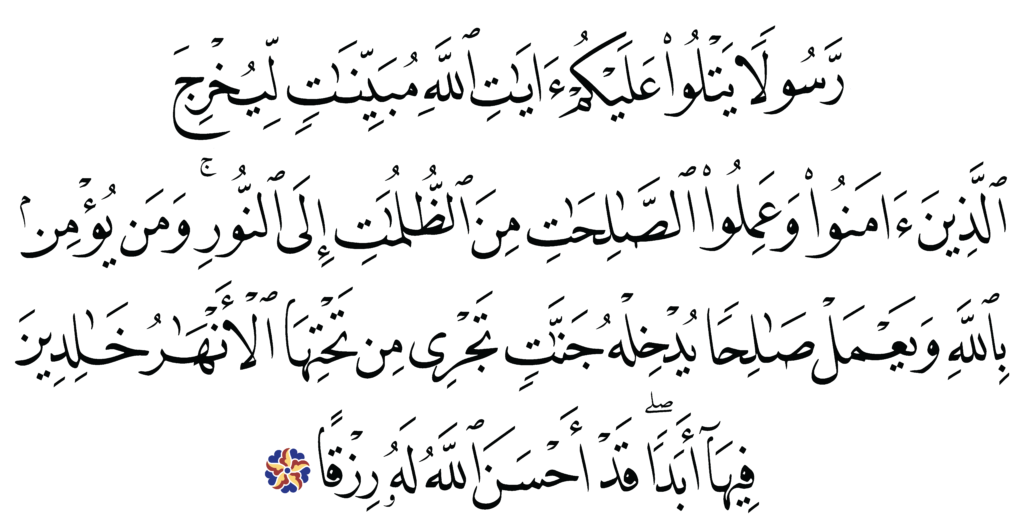 رَّسُولًا يَتْلُوا۟ عَلَيْكُمْ ءَايَٰتِ ٱللَّهِ مُبَيِّنَٰتٍ لِّيُخْرِجَ
ٱلَّذِينَ ءَامَنُوا۟ وَعَمِلُوا۟ ٱلصَّٰلِحَٰتِ مِنَ ٱلظُّلُمَٰتِ إِلَى ٱلنُّورِ ۚ وَمَن يُؤْمِنۢ
بِٱللَّهِ وَيَعْمَلْ صَٰلِحًا يُدْخِلْهُ جَنَّٰتٍ تَجْرِى مِن تَحْتِهَا ٱلْأَنْهَٰرُ خَٰلِدِينَ
فِيهَآ أَبَدًا ۖ قَدْ أَحْسَنَ ٱللَّهُ لَهُۥ رِزْقًا